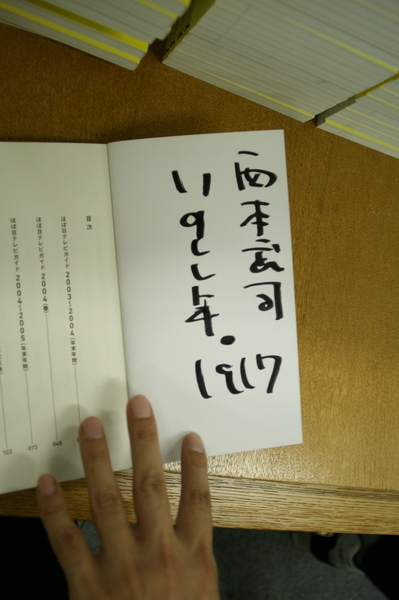 西本武司
いのしし年・
1917
目次
ほぼ日テレビガイド 2003〜2004(年末年始)
ほぼ日テレビガイド 2004(春)
ほぼ日テレビガイド 2004〜2005(年末年始) 073
103